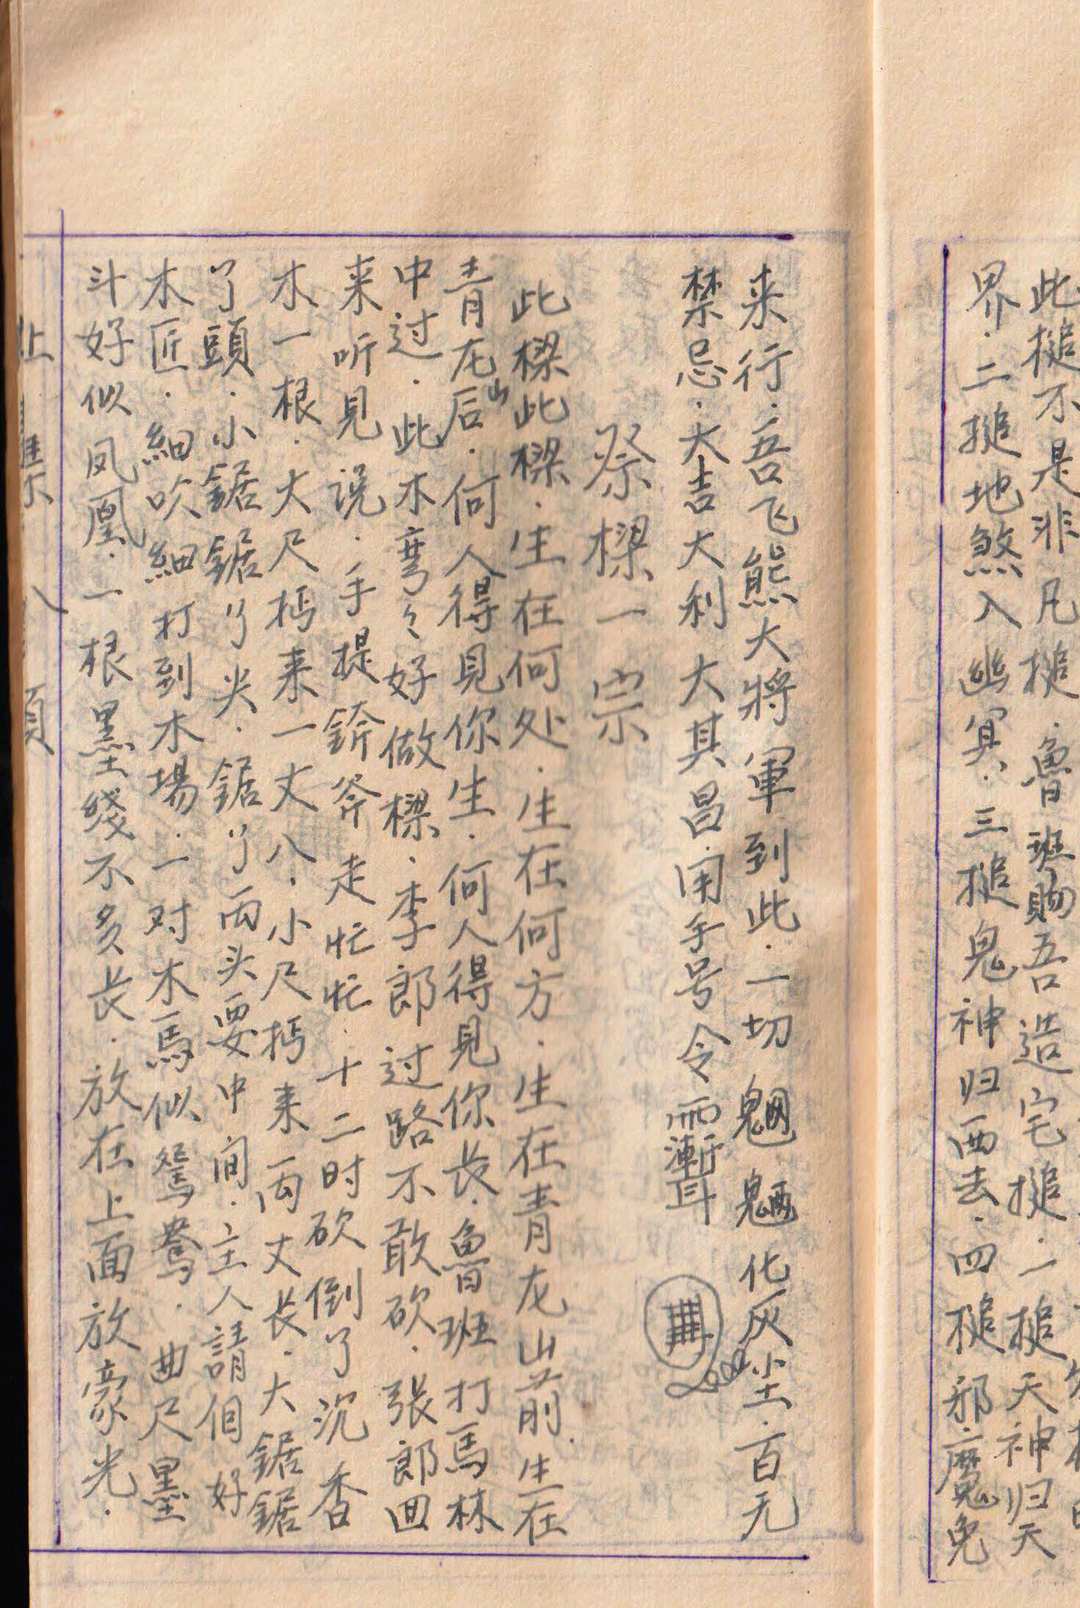 此槌不是非凡槌．魯班賜吾造宅槌．一槌天神归天
界．二槌地煞入幽冥．三槌鬼神归西去．四槌邪魔兔
来行．吾飞熊大將軍到此．一切魍魎化灰尘．百无
禁忌．大吉大利 大其昌．用手号令
祭樑一宗
此樑此樑．生在何处．生在何方．生在青龙山前．生在
青龙山后．何人得見你生．何人得見你長．魯班打馬林
中过．此木弯々好做樑．李郎过路不敢砍．張郎回
来听見说．手提斧走忙忙．十二时砍倒了沉香
木一根．大尺㧡来一丈八．小尺㧡来両丈长．大鋸鋸
了頭．小鋸鋸了尖．鋸了両头要中間．主人請個好
木匠．細吹細打到木場．一对木馬似鸳鸯．曲尺墨
斗好似凤凰．一根墨线不多長．放在上面放豪光．